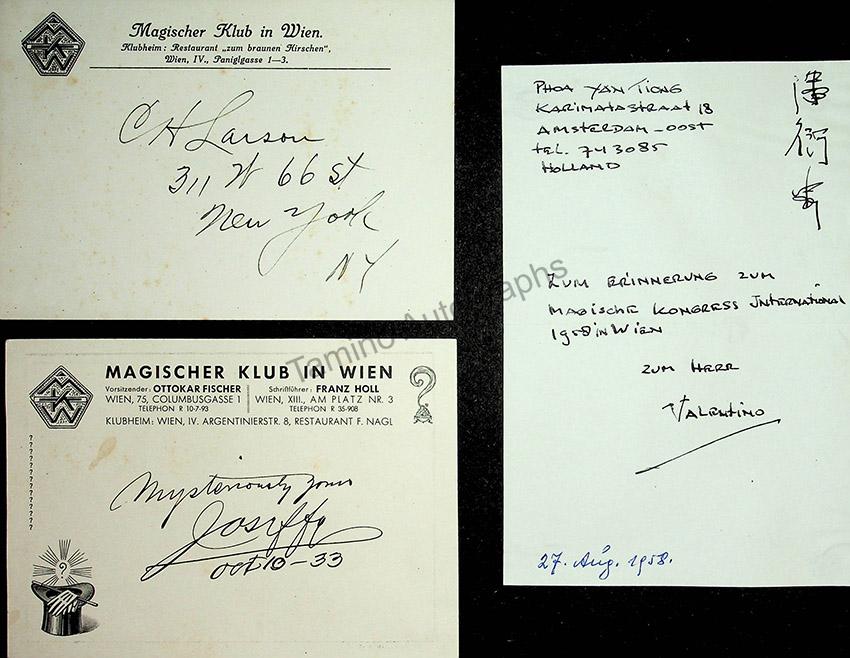 Magischer Klub in Wien.
Klubheim: Restaurant „zum braunen Hirschen",
Wien, IV., Paniglgasse 1—3.
C H Larson
311 W 66 St
New York
NY
MAGISCHER KLUB IN WIEN
Vorsitzender: OTTOKAR FISCHER
WIEN, 75, COLUMBUSGASSE 1
TELEPHON R 10-7-93
Schriftführer: FRANZ HOLL
WIEN, XIII., AM PLATZ NR. 3
TELEPHON R 35-908
KLUBHEIM: WIEN, IV. ARGENTINIERSTR. 8, RESTAURANT F. NAGL
Mysteriously yours
Josiffo
Oct 19-33
PHOA YAN TIONG
KARIMATASTRAAT 18
AMSTERDAM-OOST
tel. 743085
HOLLAND
ZUM ERINNERUNG ZUM
MAGISCHE KONGRESS INTERNATIONAL
1958 in WIEN
ZUM HERR
VALENTINO
27. Aug. 1958.
Tamino Autographs